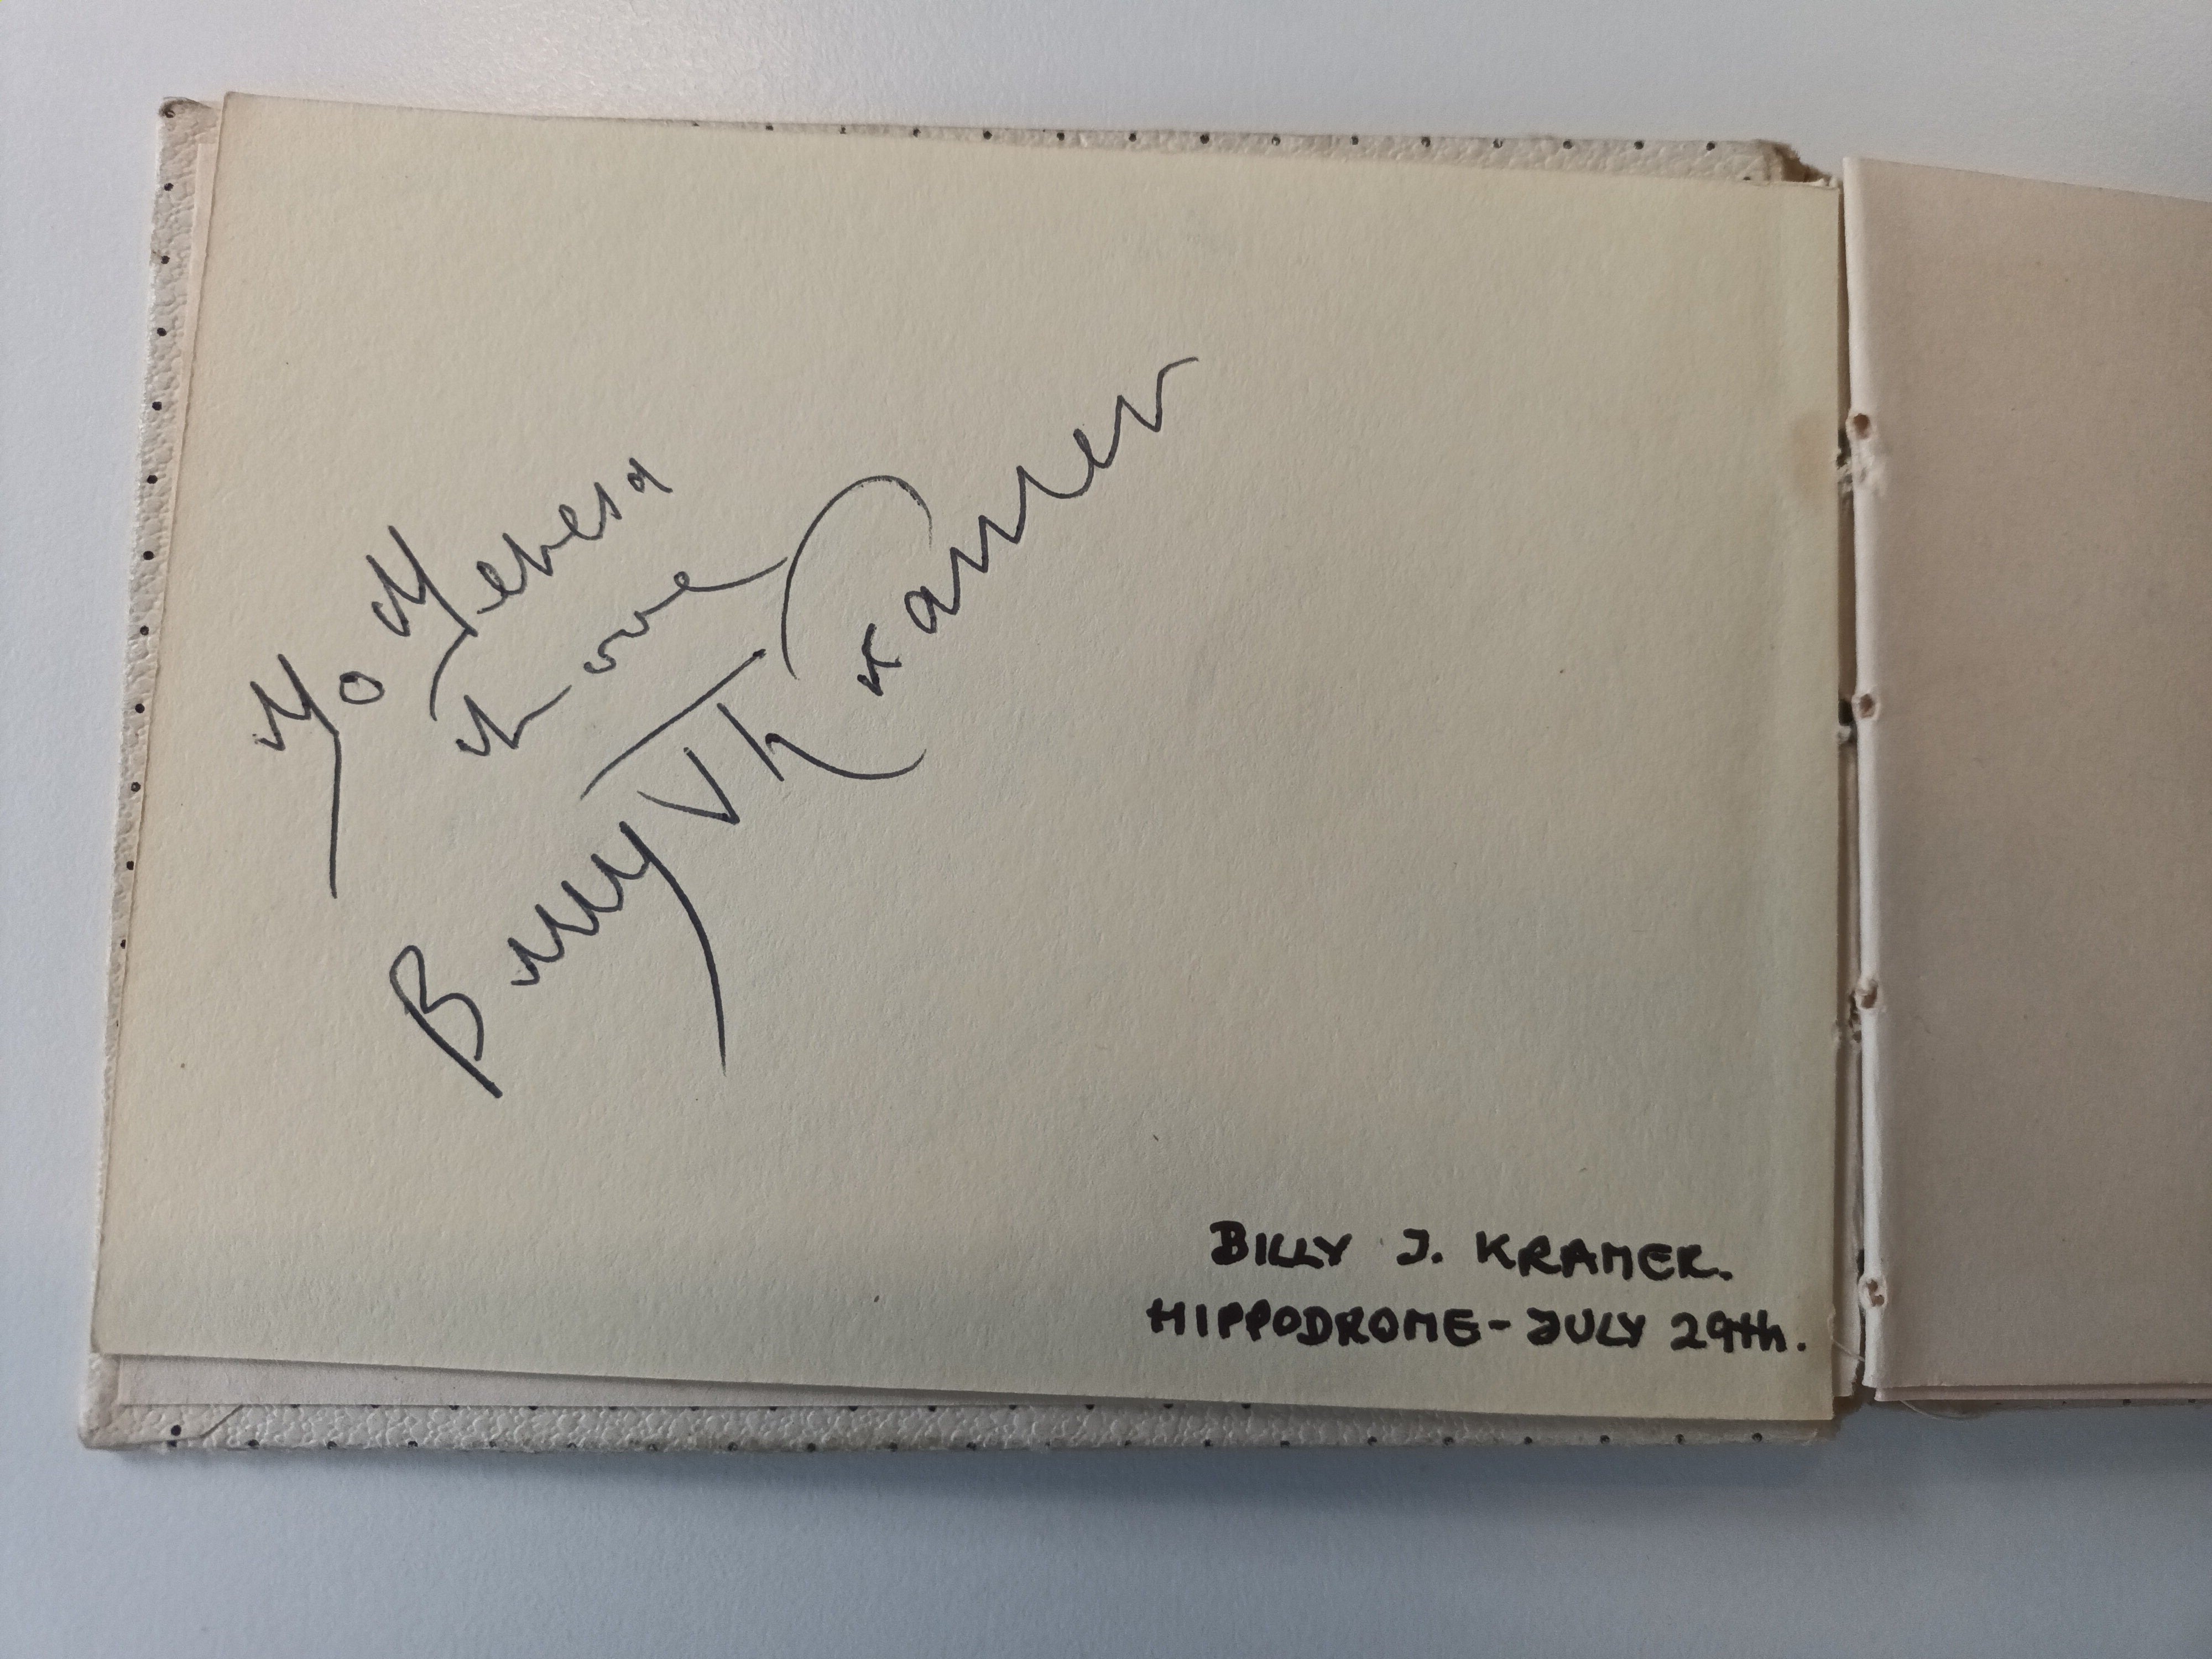 To Teresa
Love
Billy J Kramer
x
BILLY J. KRAMER.
HIPPODROME - JULY 29th.